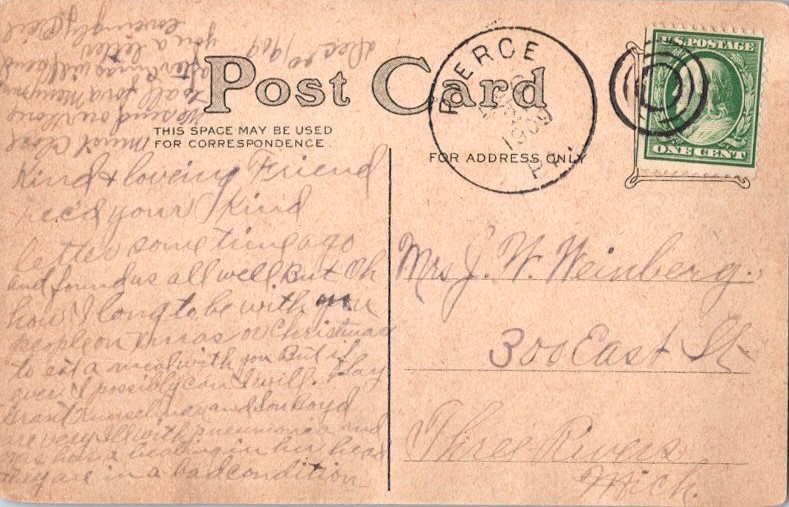 Post Card
THIS SPACE MAY BE USED
FOR CORRESPONDENCE.
FOR ADDRESS ONLY
PIERCE
1909
PA.
U.S. POSTAGE
ONE CENT
Kind & loveing Friend
rec'd your kind
letter some time ago
and found us all well But Oh
how I long to be with you
people on Xmas or Christmas
to eat a meal with you But if
ever I possibly can I will.
Grant and son Boyd
are very ill with pneumonia and
has a bealing in her head
they are in a bad condition
Dec 1909
must close
wishing one
to all
you a letter
loveingly
Mrs J. W. Weinberg.
300 East St
Three Rivers
Mich.